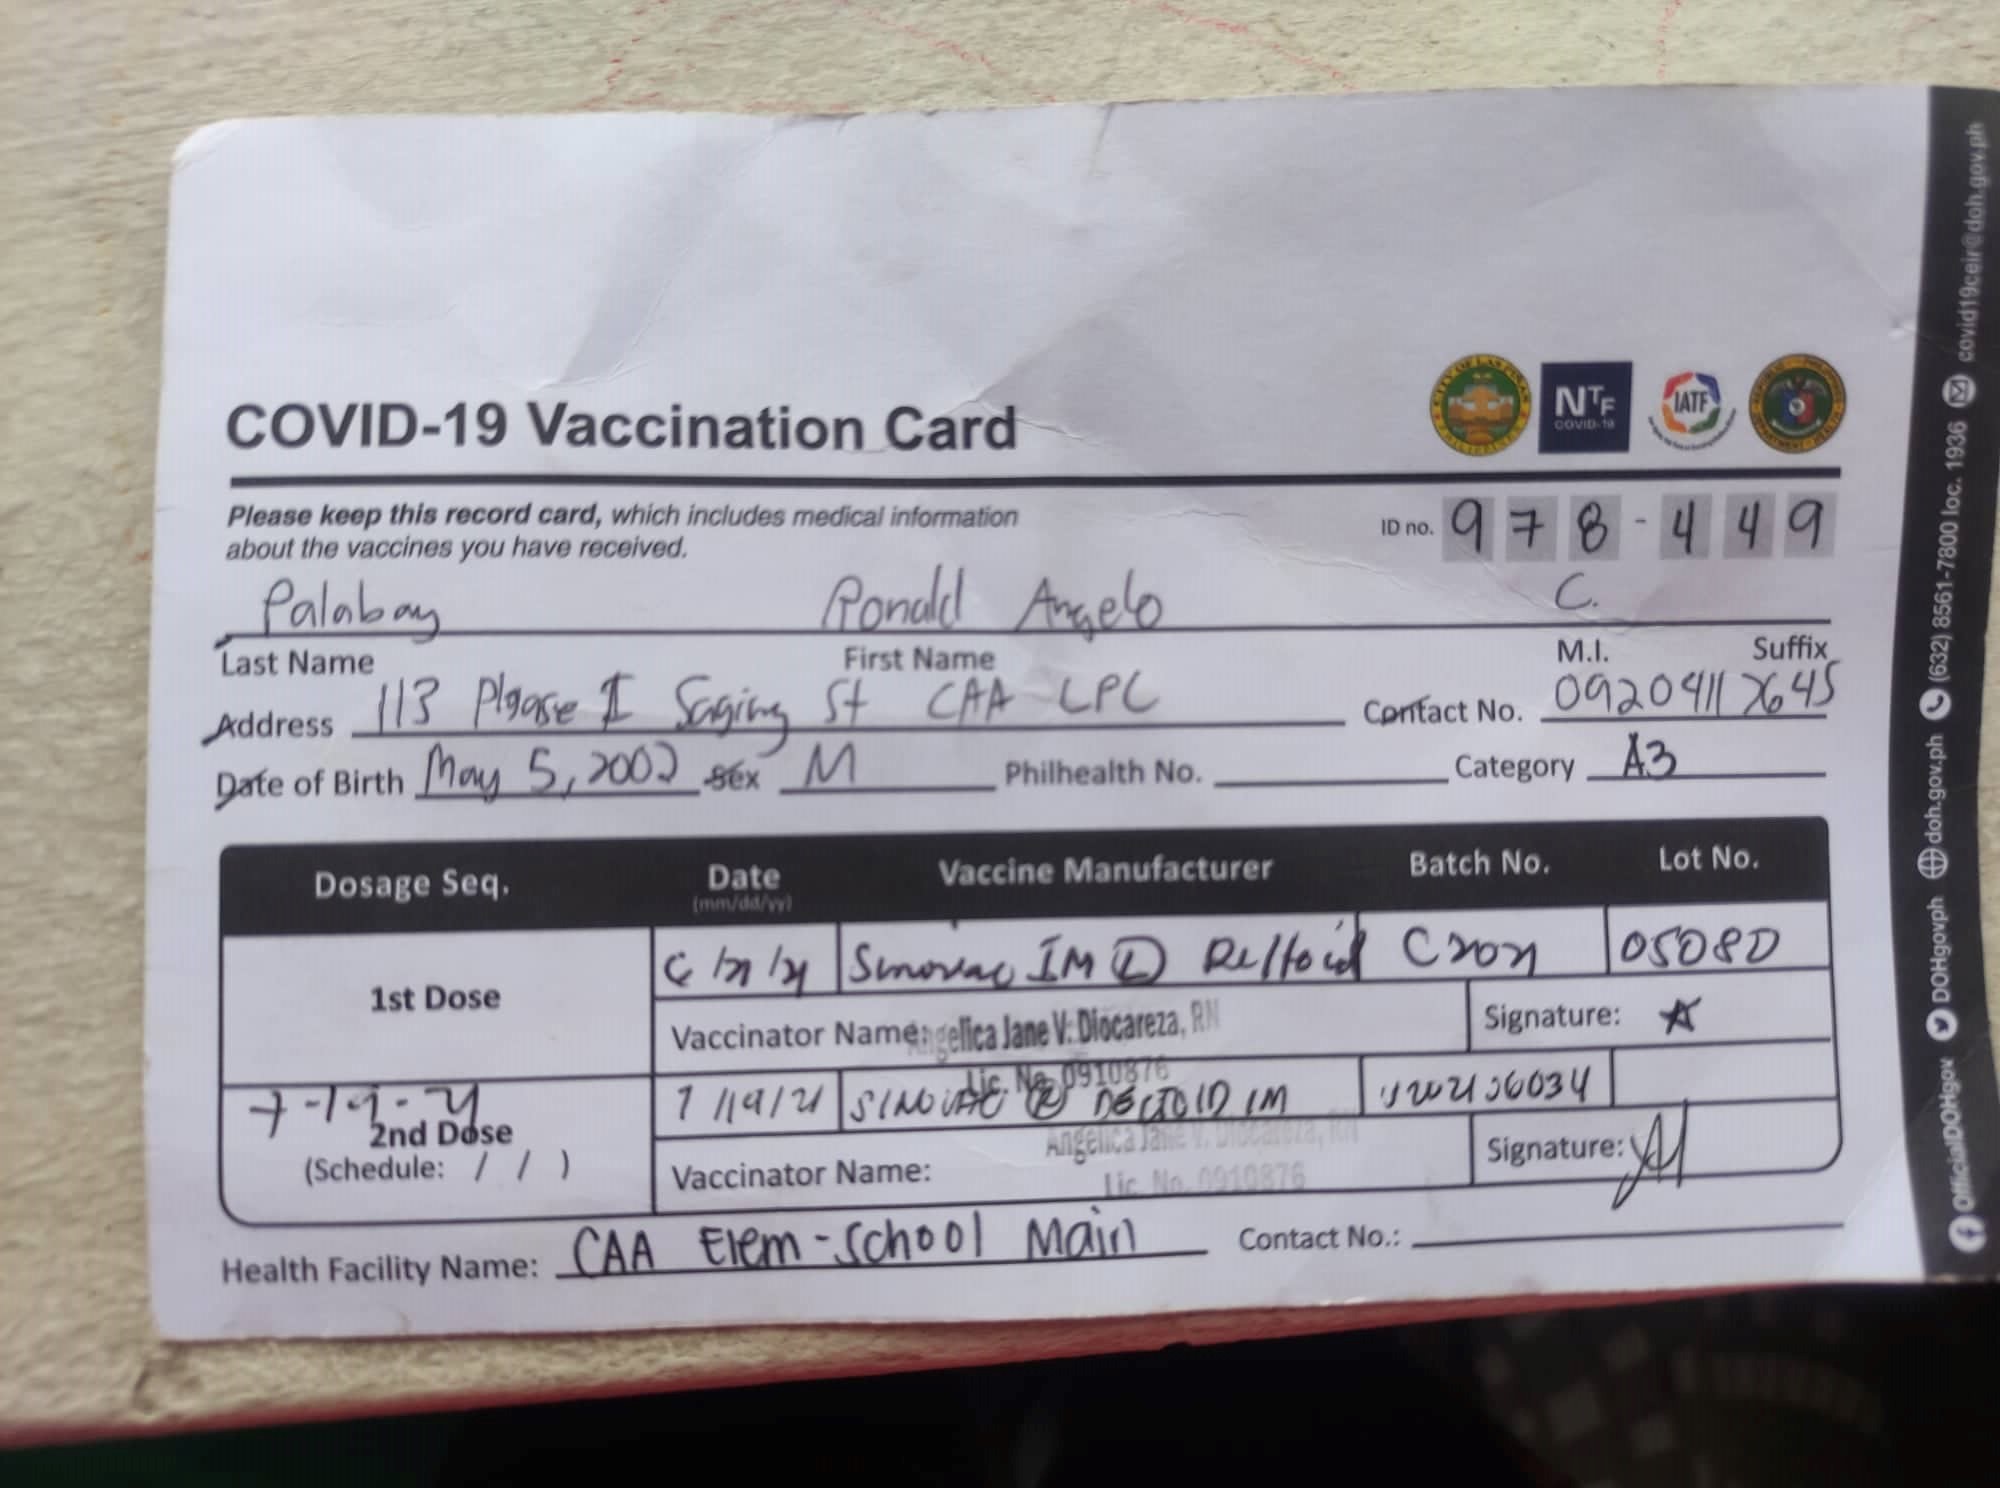 COVID-19 Vaccination Card
NTF
COVID-19
IATF
Please keep this record card, which includes medical information
about the vaccines you have received.
ID no. 978-449
Palabay Ronald Angelo C.
Last Name First Name M.I. Suffix
Address 113 Please I Saging St CAA LPC Contact No. 09204117645
Date of Birth May 5, 2002 Sex M Philhealth No. Category A3
Dosage Seq. Date (mm/dd/yy) Vaccine Manufacturer Batch No. Lot No.
1st Dose Sinovac IM L Deltoid 05080
Vaccinator Name: Angelica Jane V. Diocareza, RN Signature:
Lic. No. 0910876
7-19-21
2nd Dose 7/19/21 SINOVAC R DELTOID IM
(Schedule: / / )
Vaccinator Name: Angelica Jane V. Diocareza, RN Signature:
Lic. No. 0910876
Health Facility Name: CAA Elem-School Main Contact No.:
OfficialDOHgov DOHgovph doh.gov.ph (632) 8561-7800 loc. 1936 covid19ceir@doh.gov.ph